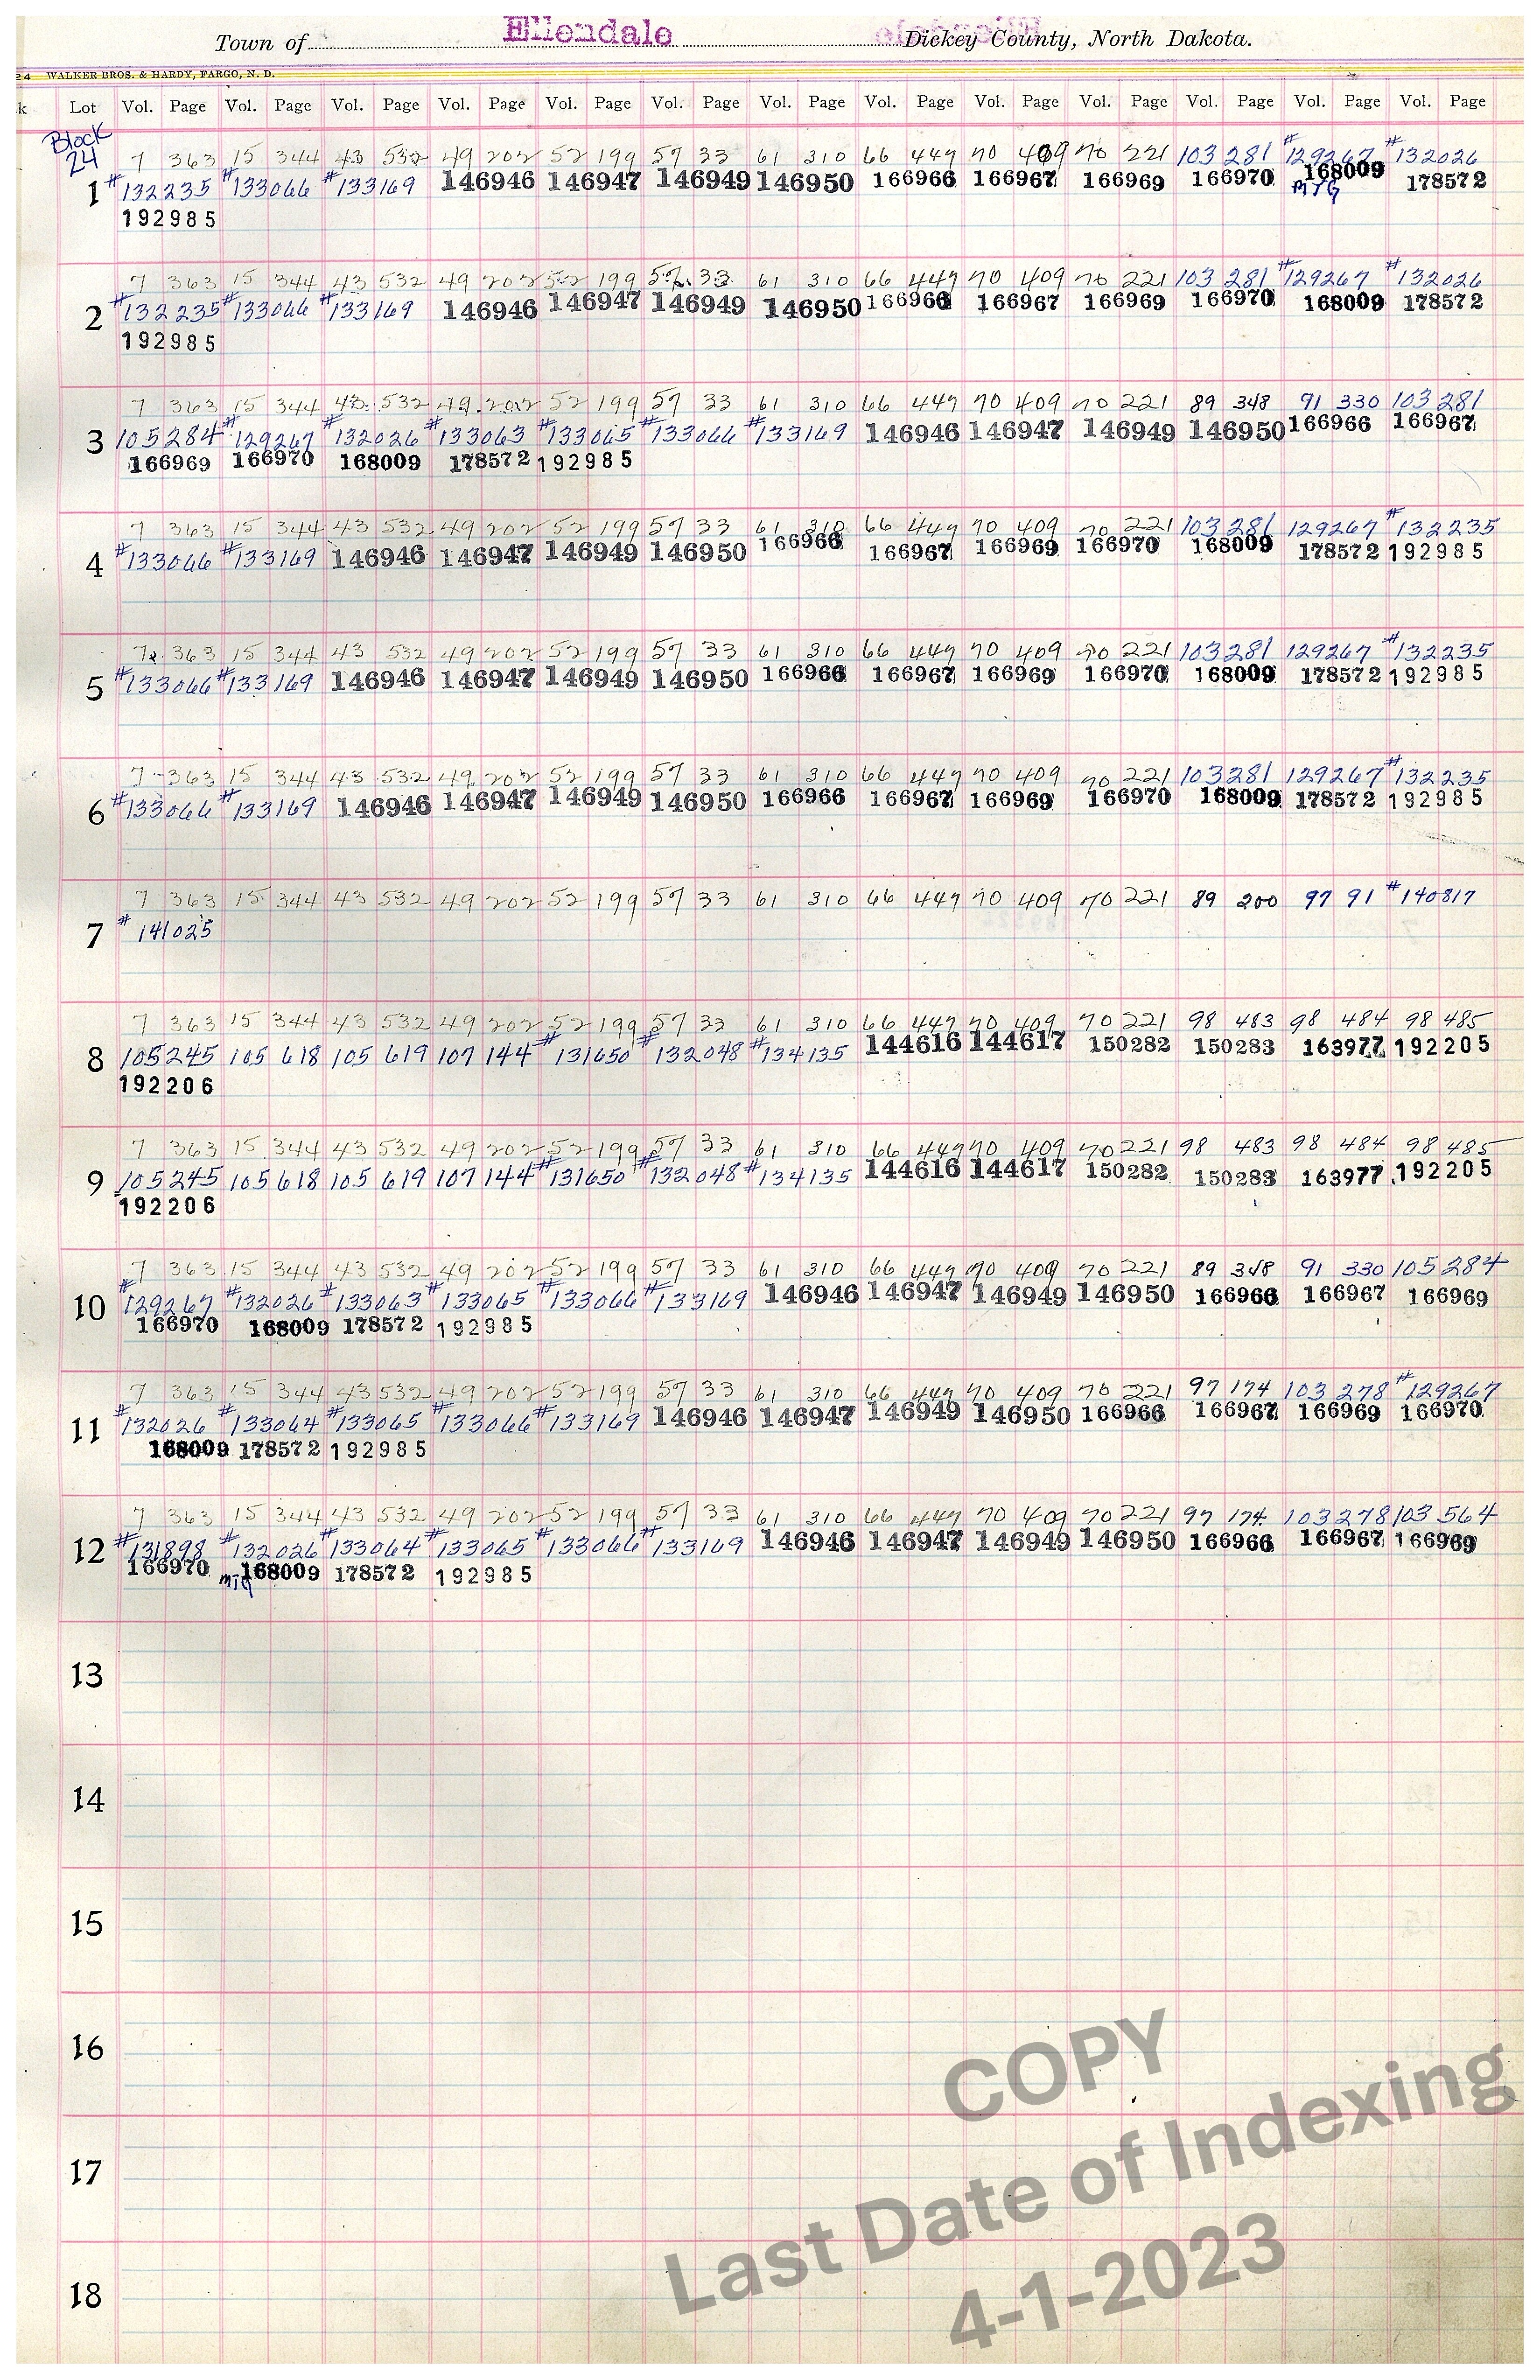 Town of Ellendale Dickey County, North Dakota.
24 WALKER BROS. & HARDY, FARGO, N. D.
k Lot Vol. Page Vol. Page Vol. Page Vol. Page Vol. Page Vol. Page Vol. Page Vol. Page Vol. Page Vol. Page Vol. Page Vol. Page Vol. Page
Block
24
7 363 15 344 43 532 49 202 52 199 57 33 61 310 66 447 70 409 70 221 103 281 #129267 #132026
1 #132235 #133066 #133169 146946 146947 146949 146950 166966 166967 166969 166970 168009 178572
MTG
192985
7 363 15 344 43 532 49 202 52 199 57 33 61 310 66 447 70 409 70 221 103 281 #129267 #132026
2 #132235 #133066 #133169 146946 146947 146949 146950 166966 166967 166969 166970 168009 178572
192985
7 363 15 344 43 532 49 202 52 199 57 33 61 310 66 447 70 409 70 221 89 348 91 330 103 281
3 105 284 #129267 #132026 #133063 #133065 #133066 #133169 146946 146947 146949 146950 166966 166967
166969 166970 168009 178572 192985
7 363 15 344 43 532 49 202 52 199 57 33 61 310 66 447 70 409 70 221 103 281 129267 #132235
4 #133066 #133169 146946 146947 146949 146950 166966 166967 166969 166970 168009 178572 192985
7 363 15 344 43 532 49 202 52 199 57 33 61 310 66 447 70 409 70 221 103 281 129267 #132235
5 #133066 #133169 146946 146947 146949 146950 166966 166967 166969 166970 168009 178572 192985
7 363 15 344 43 532 49 202 52 199 57 33 61 310 66 447 70 409 70 221 103 281 129267 #132235
6 #133066 #133169 146946 146947 146949 146950 166966 166967 166969 166970 168009 178572 192985
7 363 15 344 43 532 49 202 52 199 57 33 61 310 66 447 70 409 70 221 89 200 97 91 #140817
7 #141025
7 363 15 344 43 532 49 202 52 199 57 33 61 310 66 447 70 409 70 221 98 483 98 484 98 485
8 105 245 105 618 105 619 107 144 #131650 #132048 #134135 144616 144617 150282 150283 163977 192205
192206
7 363 15 344 43 532 49 202 52 199 57 33 61 310 66 447 70 409 70 221 98 483 98 484 98 485
9 105 245 105 618 105 619 107 144 #131650 #132048 #134135 144616 144617 150282 150283 163977 192205
192206
7 363 15 344 43 532 49 202 52 199 57 33 61 310 66 447 70 409 70 221 89 348 91 330 105 284
10 #129267 #132026 #133063 #133065 #133066 #133169 146946 146947 146949 146950 166966 166967 166969
166970 168009 178572 192985
7 363 15 344 43 532 49 202 52 199 57 33 61 310 66 447 70 409 70 221 97 174 103 278 #129267
11 #132026 #133064 #133065 #133066 #133169 146946 146947 146949 146950 166966 166967 166969 166970
168009 178572 192985
7 363 15 344 43 532 49 202 52 199 57 33 61 310 66 447 70 409 70 221 97 174 103 278 103 564
12 #131898 #132026 #133064 #133065 #133066 #133169 146946 146947 146949 146950 166966 166967 166969
166970 MTG 168009 178572 192985
13
14
15
16
17
18
COPY
Last Date of Indexing
4-1-2023